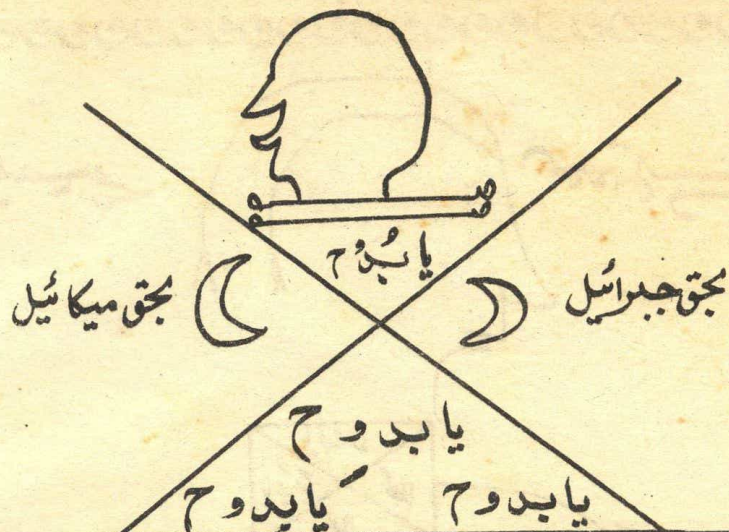 یا بُدُوح
بحق جبرائیل
بحق میکائیل
یا بدوح
یا بدوح
یا بدوح